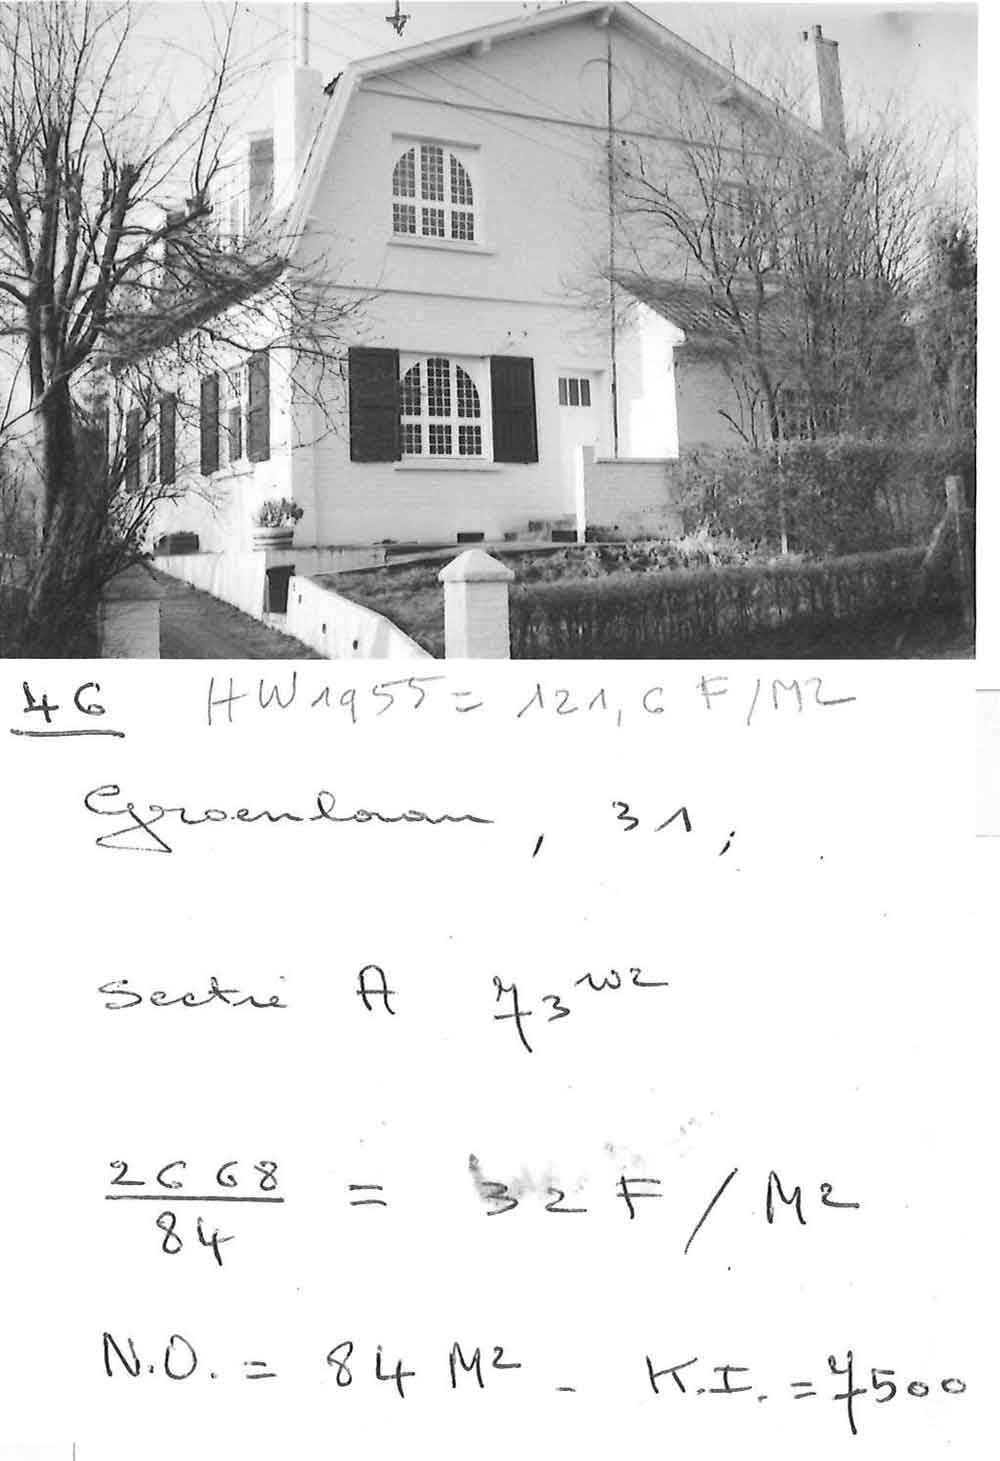 46 HW1955 = 121,6 F/M2
Groenlaan, 31,
Sectie A 73w2
2668
84
= 32 F/M2
N.O. = 84 M2 - K.I. = 7500